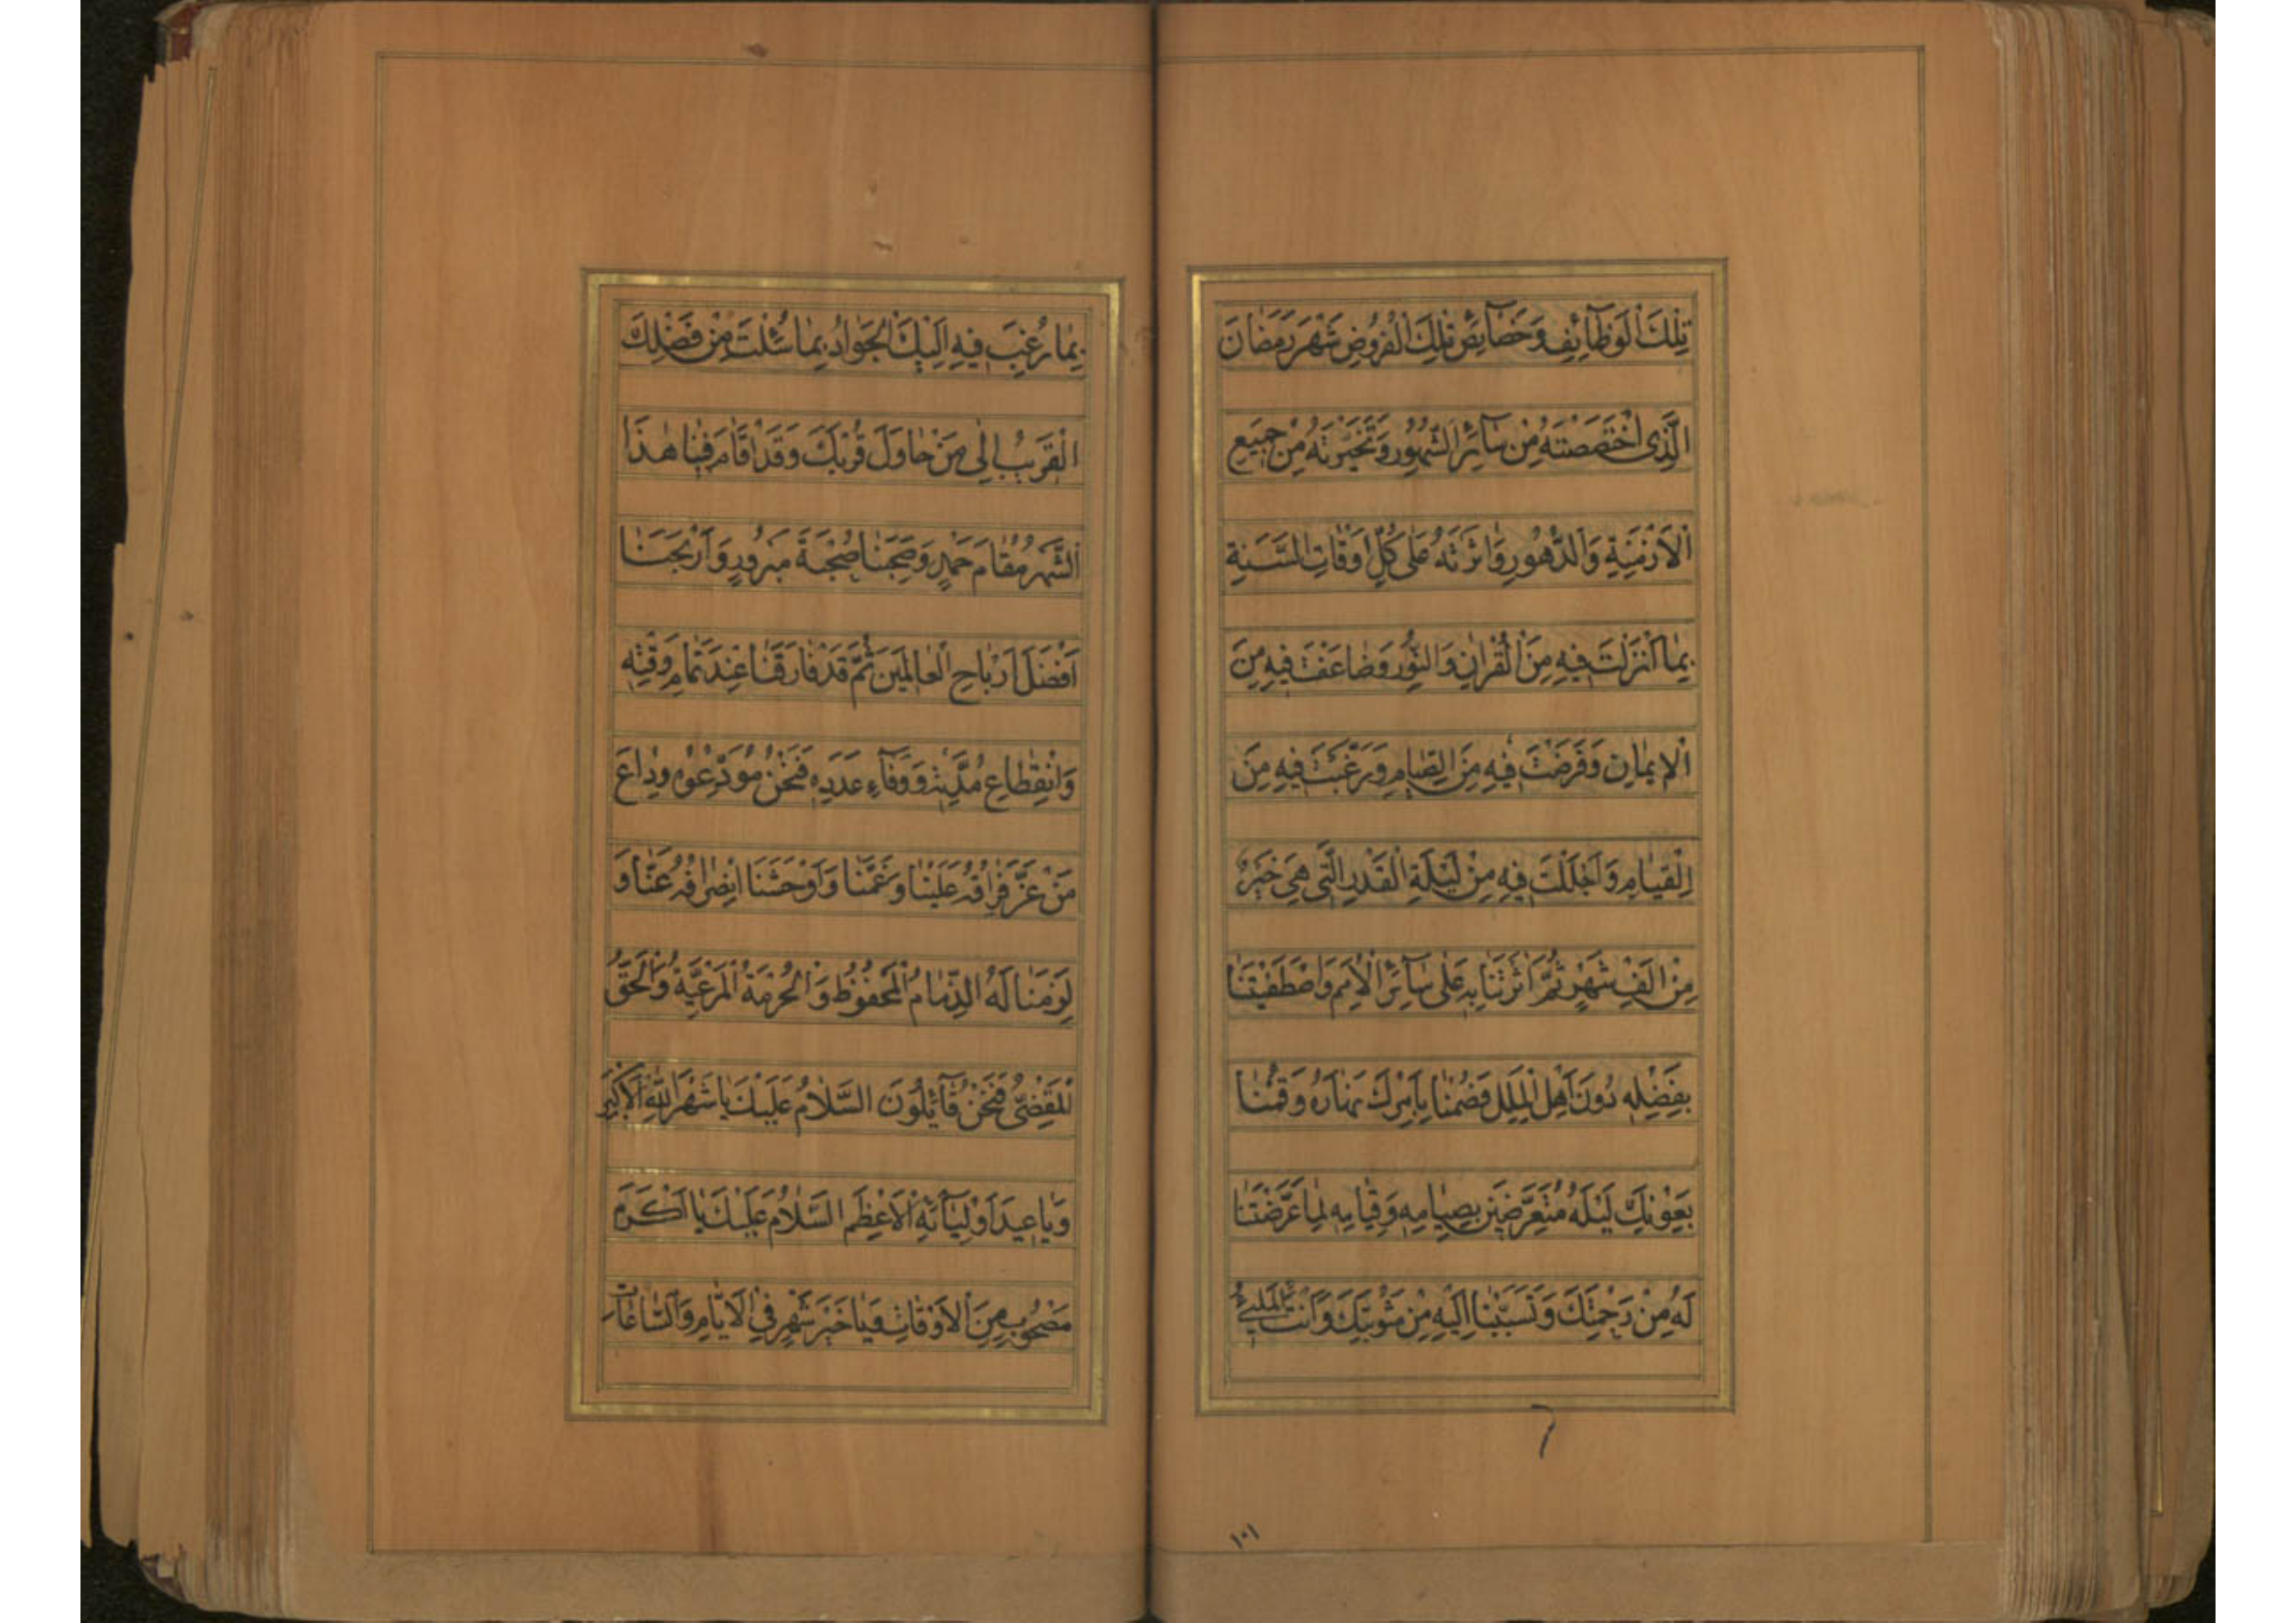 تِلْكَ الْوَظَآئِفِ وَخَصَآئِصِ تِلْكَ الْفُرُوضِ شَهْرَ رَمَضَانَ
الَّذِى اخْتَصَصْتَهُ مِنْ سَآئِرِ الشُّهُورِ وَتَخَيَّرْتَهُ مِنْ جَمِيعِ
الْاَزْمِنَةِ وَالدُّهُورِ وَاٰثَرْتَهُ عَلٰى كُلِّ اَوْقَاتِ السَّنَةِ
بِمَا اَنْزَلْتَ فِيهِ مِنَ الْقُرْاٰنِ وَالنُّورِ وَضَاعَفْتَ فِيهِ مِنَ
الْاِيمَانِ وَفَرَضْتَ فِيهِ مِنَ الصِّيَامِ وَرَغَّبْتَ فِيهِ مِنَ
الْقِيَامِ وَاَجْلَلْتَ فِيهِ مِنْ لَيْلَةِ الْقَدْرِ الَّتِى هِىَ خَيْرٌ
مِنْ اَلْفِ شَهْرٍ ثُمَّ اٰثَرْتَنَا بِهِ عَلٰى سَآئِرِ الْاُمَمِ وَاصْطَفَيْتَنَا
بِفَضْلِهِ دُونَ اَهْلِ الْمِلَلِ فَصُمْنَا بِاَمْرِكَ نَهَارَهُ وَقُمْنَا
بِعَوْنِكَ لَيْلَهُ مُتَعَرِّضِينَ بِصِيَامِهِ وَقِيَامِهِ لِمَا عَرَّضْتَنَا
لَهُ مِنْ رَحْمَتِكَ وَتَسَبَّبْنَا اِلَيْهِ مِنْ مَثُوبَتِكَ وَاَنْتَ الْمَلِىءُ
١٠١
بِمَا رُغِبَ فِيهِ اِلَيْكَ الْجَوَادُ بِمَا سُئِلْتَ مِنْ فَضْلِكَ
الْقَرِيبُ اِلٰى مَنْ حَاوَلَ قُرْبَكَ وَقَدْ اَقَامَ فِينَا هٰذَا
الشَّهْرُ مُقَامَ حَمْدٍ وَصَحِبَنَا صُحْبَةَ مَبْرُورٍ وَاَرْبَحَنَا
اَفْضَلَ اَرْبَاحِ الْعَالَمِينَ ثُمَّ قَدْ فَارَقَنَا عِنْدَ تَمَامِ وَقْتِهِ
وَانْقِطَاعِ مُدَّتِهِ وَوَفَآءِ عَدَدِهِ فَنَحْنُ مُوَدِّعُوهُ وِدَاعَ
مَنْ عَزَّ فِرَاقُهُ عَلَيْنَا وَغَمَّنَا وَاَوْحَشَنَا انْصِرَافُهُ عَنَّا وَ
لَزِمَنَا لَهُ الذِّمَامُ الْمَحْفُوظُ وَالْحُرْمَةُ الْمَرْعِيَّةُ وَالْحَقُّ
الْمَقْضِىُّ فَنَحْنُ قَآئِلُونَ السَّلَامُ عَلَيْكَ يَا شَهْرَ اللّٰهِ الْاَكْبَرَ
وَيَا عِيدَ اَوْلِيَآئِهِ الْاَعْظَمَ السَّلَامُ عَلَيْكَ يَا اَكْرَمَ
مَصْحُوبٍ مِنَ الْاَوْقَاتِ وَيَا خَيْرَ شَهْرٍ فِى الْاَيَّامِ وَالسَّاعَاتِ